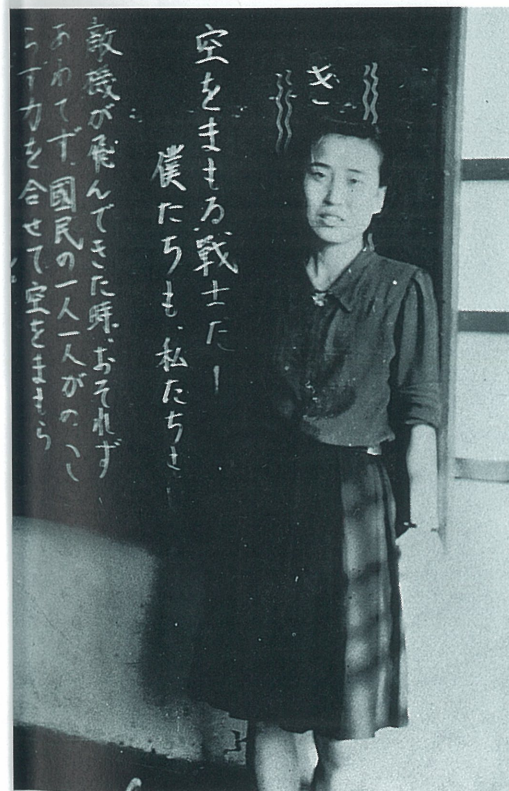 ぎ
空をまもる戦士だ!
僕たちも、私たちも、
敵機が飛んできた時、おそれず、
あわてず、國民の一人一人がのこ
らず力を合せて空をまもら